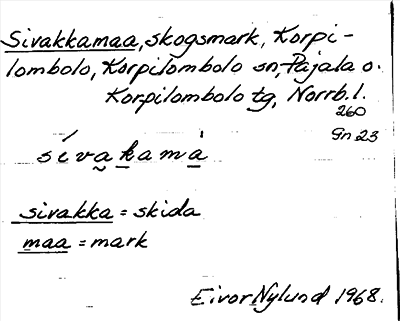 Sivakkamaa, skogsmark, Korpi-
lombolo, Korpilombolo sn, Pajala o.
Korpilombolo tg, Norrb. l.
260
Gn 23
sívakamà
sivakka = skida
maa = mark
Eivor Nylund 1968.